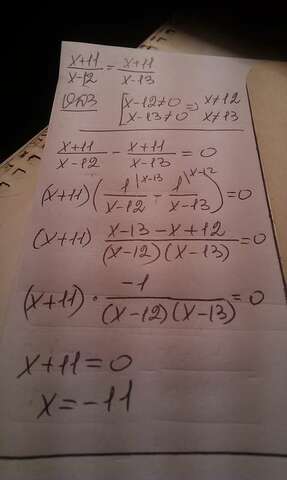 x+11/x-12 = x+11/x-13
ОДЗ [x-12≠0 => x≠12
x-13≠0 x≠13
x+11/x-12 - x+11/x-13 = 0
(x+11)(1/x-12 |x-13 - 1/x-13 |x-12) = 0
(x+11) x-13-x+12/(x-12)(x-13) = 0
(x+11) · -1/(x-12)(x-13) = 0
x+11=0
x=-11